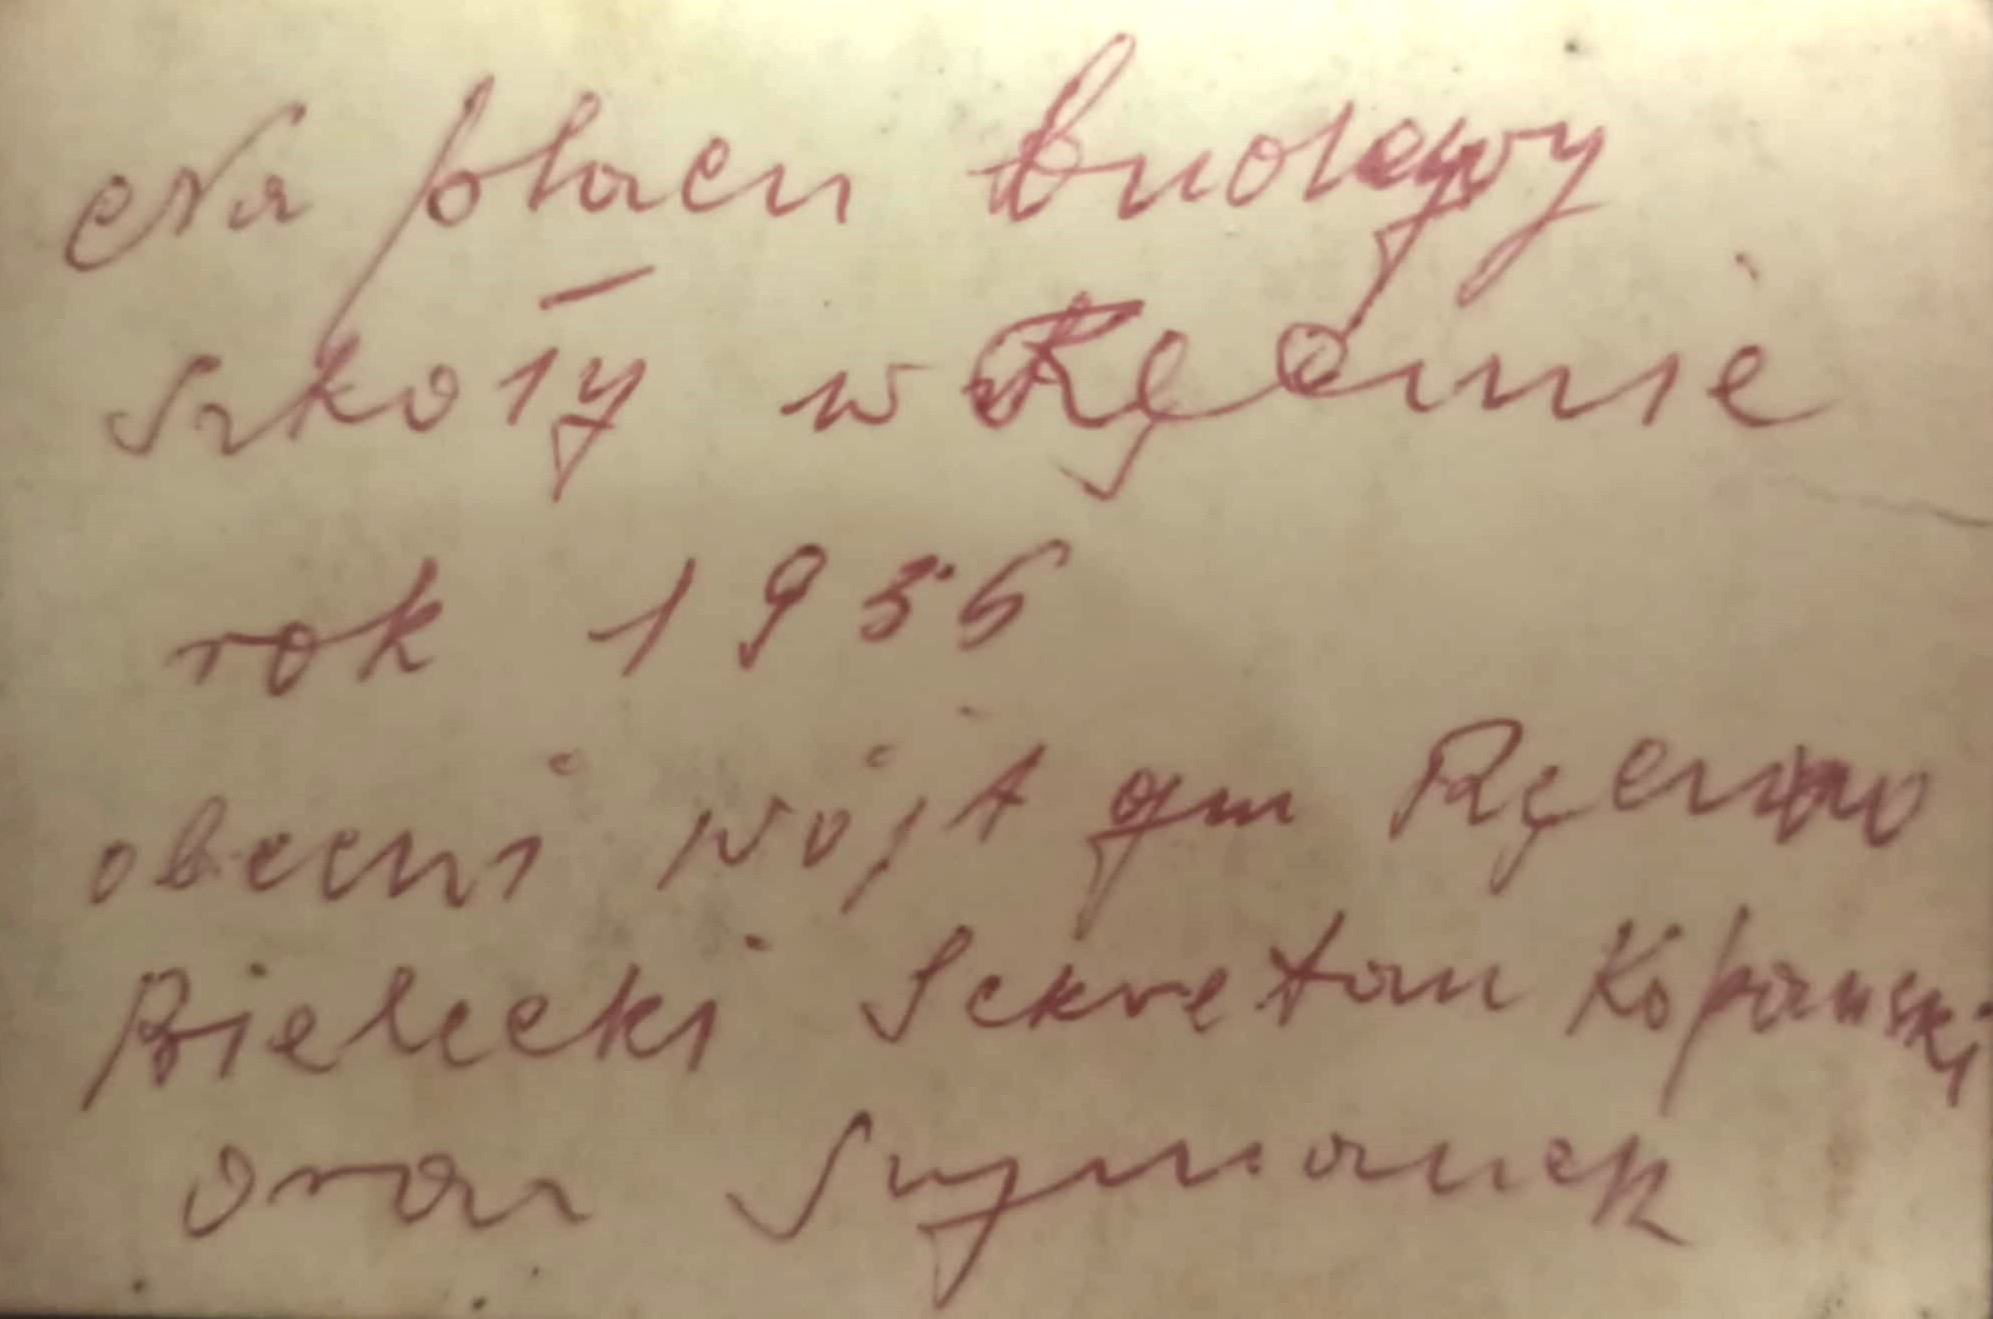 Na placu budowy
szkoły w Ręcznie
rok 1936
obecni wójt gm Ręczno
Bielecki Sekretarz Kopański
oraz Szymanek